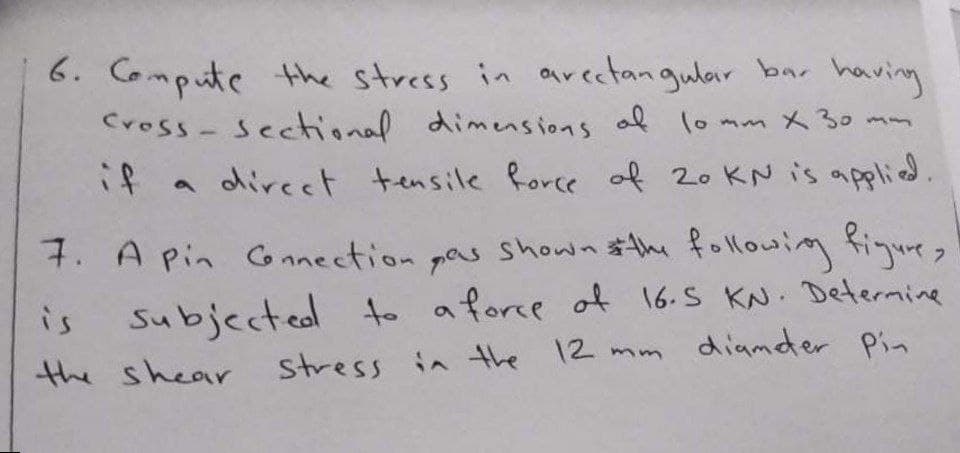 6. Compute the stress in arectangular bar having
cross-sectional dimensions of 10 mm X 30 mm
if a direct tensile force of 20 KN is applied.
7. A pin Connection as shown the following figure,
is subjected to a force of 16.5 KN. Determine
the shear stress in the 12 mm diamter pin